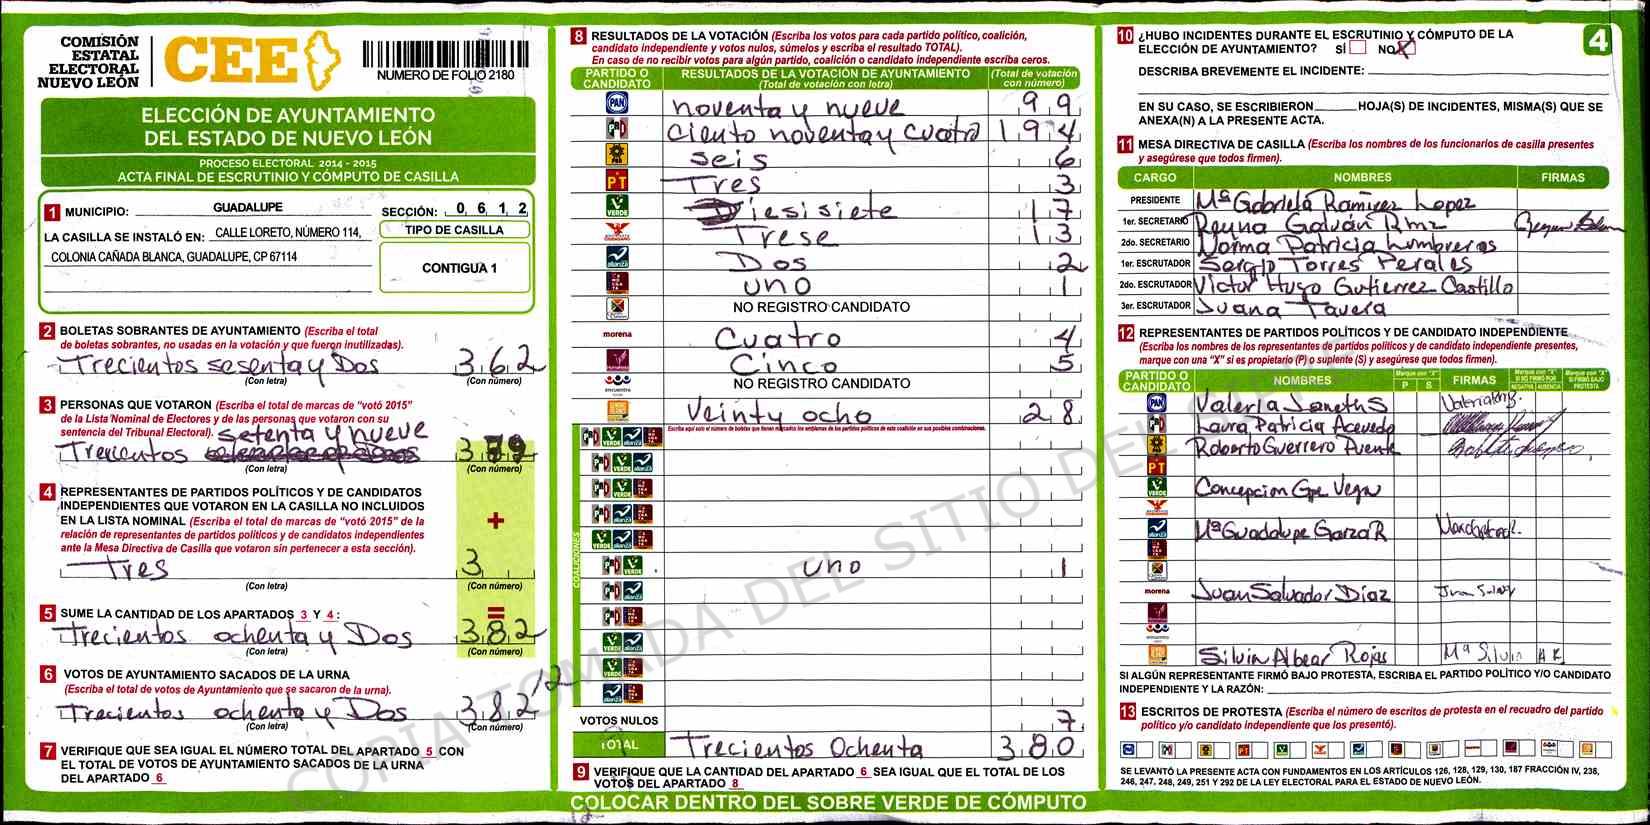 COMISIÓN
ESTATAL
ELECTORAL
NUEVO LEÓN
CEE
NUMERO DE FOLIO 2180
ELECCIÓN DE AYUNTAMIENTO
DEL ESTADO DE NUEVO LEÓN
PROCESO ELECTORAL 2014 - 2015
ACTA FINAL DE ESCRUTINIO Y CÓMPUTO DE CASILLA
1 MUNICIPIO: GUADALUPE
SECCIÓN: 0 6 1 2
LA CASILLA SE INSTALÓ EN: CALLE LORETO, NÚMERO 114,
COLONIA CAÑADA BLANCA, GUADALUPE, CP 67114
TIPO DE CASILLA
CONTIGUA 1
2 BOLETAS SOBRANTES DE AYUNTAMIENTO (Escriba el total
de boletas sobrantes, no usadas en la votación y que fueron inutilizadas).
Trecientos sesenta y Dos 3 6 2
(Con letra) (Con número)
3 PERSONAS QUE VOTARON (Escriba el total de marcas de “votó 2015”
de la Lista Nominal de Electores y de las personas que votaron con su
sentencia del Tribunal Electoral).
setenta y nueve
Trecientos 3 7 9
(Con letra) (Con número)
4 REPRESENTANTES DE PARTIDOS POLÍTICOS Y DE CANDIDATOS
INDEPENDIENTES QUE VOTARON EN LA CASILLA NO INCLUIDOS
EN LA LISTA NOMINAL (Escriba el total de marcas de “votó 2015” de la
relación de representantes de partidos políticos y de candidatos independientes
ante la Mesa Directiva de Casilla que votaron sin pertenecer a esta sección).
+
Tres 3
(Con letra) (Con número)
5 SUME LA CANTIDAD DE LOS APARTADOS 3 Y 4:
=
Trecientos ochenta y Dos 3 8 2
(Con letra) (Con número)
6 VOTOS DE AYUNTAMIENTO SACADOS DE LA URNA
(Escriba el total de votos de Ayuntamiento que se sacaron de la urna).
Trecientos ochenta y Dos 3 8 2
(Con letra) (Con número)
7 VERIFIQUE QUE SEA IGUAL EL NÚMERO TOTAL DEL APARTADO 5 CON
EL TOTAL DE VOTOS DE AYUNTAMIENTO SACADOS DE LA URNA
DEL APARTADO 6
8 RESULTADOS DE LA VOTACIÓN (Escriba los votos para cada partido político, coalición,
candidato independiente y votos nulos, súmelos y escriba el resultado TOTAL).
En caso de no recibir votos para algún partido, coalición o candidato independiente escriba ceros.
PARTIDO O CANDIDATO
RESULTADOS DE LA VOTACIÓN DE AYUNTAMIENTO
(Total de votación con letra)
(Total de votación con número)
PAN noventa y nueve 9 9
PRI ciento noventa y cuatro 1 9 4
PRD seis 6
PT Tres 3
VERDE Diesisiete 1 7
Trese 1 3
alianza Dos 2
uno 1
NO REGISTRO CANDIDATO
morena Cuatro 4
Cinco 5
NO REGISTRO CANDIDATO
Veinty ocho 2 8
Escriba aquí solo el número de boletas que tienen marcados los emblemas de los partidos políticos de esta coalición en sus posibles combinaciones.
COALICIONES
uno 1
VOTOS NULOS 7
TOTAL Trecientos Ochenta 3 8 0
9 VERIFIQUE QUE LA CANTIDAD DEL APARTADO 6 SEA IGUAL QUE EL TOTAL DE LOS
VOTOS DEL APARTADO 8
COLOCAR DENTRO DEL SOBRE VERDE DE CÓMPUTO
4
10 ¿HUBO INCIDENTES DURANTE EL ESCRUTINIO Y CÓMPUTO DE LA
ELECCIÓN DE AYUNTAMIENTO? SÍ NO X
DESCRIBA BREVEMENTE EL INCIDENTE:
EN SU CASO, SE ESCRIBIERON HOJA(S) DE INCIDENTES, MISMA(S) QUE SE
ANEXA(N) A LA PRESENTE ACTA.
11 MESA DIRECTIVA DE CASILLA (Escriba los nombres de los funcionarios de casilla presentes
y asegúrese que todos firmen).
CARGO NOMBRES FIRMAS
PRESIDENTE Mª Gabriela Ramirez Lopez
1er. SECRETARIO Reyna Galván Rmz
2do. SECRETARIO Norma Patricia Lumbreras
1er. ESCRUTADOR Sergio Torres Perales
2do. ESCRUTADOR Victor Hugo Gutierrez Castillo
3er. ESCRUTADOR Juana Tavera
12 REPRESENTANTES DE PARTIDOS POLÍTICOS Y DE CANDIDATO INDEPENDIENTE
(Escriba los nombres de los representantes de partidos políticos y de candidato independiente presentes,
marque con una “X” si es propietario (P) o suplente (S) y asegúrese que todos firmen).
PARTIDO O CANDIDATO NOMBRES Marque con “X” P S FIRMAS
PAN Valeria Janeth S
Laura Patricia Acevedo
Roberto Guerrero Puente
PT
VERDE Concepcion Gpe Vega
Mª Guadalupe Garza R
morena Juan Salvador Díaz
Silvia Albear Rojas Mª Silvia A R
SI ALGÚN REPRESENTANTE FIRMÓ BAJO PROTESTA, ESCRIBA EL PARTIDO POLÍTICO Y/O CANDIDATO
INDEPENDIENTE Y LA RAZÓN:
13 ESCRITOS DE PROTESTA (Escriba el número de escritos de protesta en el recuadro del partido
político y/o candidato independiente que los presentó).
SE LEVANTÓ LA PRESENTE ACTA CON FUNDAMENTOS EN LOS ARTÍCULOS 126, 128, 129, 130, 187 FRACCIÓN IV, 238,
246, 247, 248, 249, 251 Y 292 DE LA LEY ELECTORAL PARA EL ESTADO DE NUEVO LEÓN.
COPIA TOMADA DEL SITIO DE